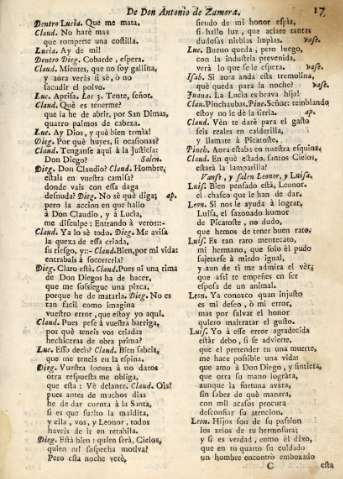 De Don Antonio de Zamora. 17
Dentro Lucia. Que me mata.
Claud. No haré mas
que romperte una costilla.
Lucia. Ay de mi!
Dentro Dieg. Cobarde, espera.
Claud. Mientes, que no soy gallina,
y aora verás si sé, ò no
sacudir el polvo.
Luc. Aprisa. Los 3. Tente, señor.
Claud. Què es tenerme?
que la he de abrir, por San Dimas,
quatro palmos de cabeza.
Luc. Ay Dios, y què bien tenia!
Dieg. Por què huyes, si ocasionas?
Claud. Tenganse aqui à la Justicia:
Don Diego? Salen.
Dieg. Don Claudio? Claud. Hombre,
estais en vuestra camisa?
donde vais con essa daga
desnuda? Dieg. No sè què diga; ap.
pero la accion en que hallo
à Don Claudio, y à Lucia,
me disculpe: Entrando à veros::-
Claud. Ya lo sè todo. Dieg. Me avisa
la quexa de essa criada,
su riesgo, y::- Claud. Bien, por mi vida:
entrabais à socorrerla?
Dieg. Claro està. Claud. Pues si una tima
de Don Diegos ha de hacer,
que me sossiegue una pizca,
porque he de matarla. Dieg. No es
tan facil como imagina
vuestro error, que estoy yo aqui.
Claud. Pues pese à vuestra barriga,
por què teneis vos celadas
hechiceras de obra prima?
Luc. Esso decís? Claud. Bien sabeis,
que me teneis en la espina.
Dieg. Vuestra locura à no daros
otra respuesta me obliga,
que esta: Vè delante. Claud. Ola!
pues antes de muchos dias
he de dar cuenta à la Santa,
si es que suelto la maldita,
y ella, vos, y Leonor, todos
haveis de ir en retahila.
Dieg. Està bien: quien serà, Cielos,
quien mi sospecha motiva?
Pero essa noche verè,
siendo de mi honor espia,
si hallo luz, que aclare tantas
dudosas nieblas impias. vase.
Luc. Bueno queda; pero luego,
con la industria prevenida,
verà lo que se le espera. vase.
Isab. Si aora anda esta tremolina,
què queda para la noche? vase.
Juana. La Lucia es brava hija!
Clau. Pinchaubas. Pinc. Señor: temblando
estoy no le dè la siria. ap.
Claud. Vèn te darè para el gasto
seis reales en calderilla,
y llamate à Picatoste,
Pinch. Aora estaba en nuestra esquina.
Claud. En què estado, santos Cielos,
estarà la lamparilla!
Vanse, y salen Leonor, y Luisa.
Luis. Bien pensado està, Leonor,
el chasco que le han de dar.
Leon. Si nos le ayuda à lograr,
Luisa, el sazonado humor
de Picatoste, no dudo,
que hemos de tener buen rato.
Luis. Es tan raro mentecato,
mi hermano, que solo èl pudo
sujetarse à miedo igual,
y aun de tì me admira el vèr,
que assi te empeñes en ser
esposa de un animal.
Leon. Ya conozco quan injusto
es mi deseo, ò mi error,
mas por salvar el honor
quiero maltratar el gusto.
Luis. Yo à esse error agradecida
estàr debo, si se advierte,
que el pretender tu una muerte,
me hace possible una vida:
que amo à Don Diego, y sintiera,
que otra su mano lograra,
aunque la fortuna avara,
sin saber de què manera,
con mil acasos procura
desconfiar su atencion.
Leon. Hijos son de su passion
los zelos de tu hermosura;
y si es verdad, como èl dixo,
que en tu quarto su cuidado
un hombre encontrò embozado
C esta